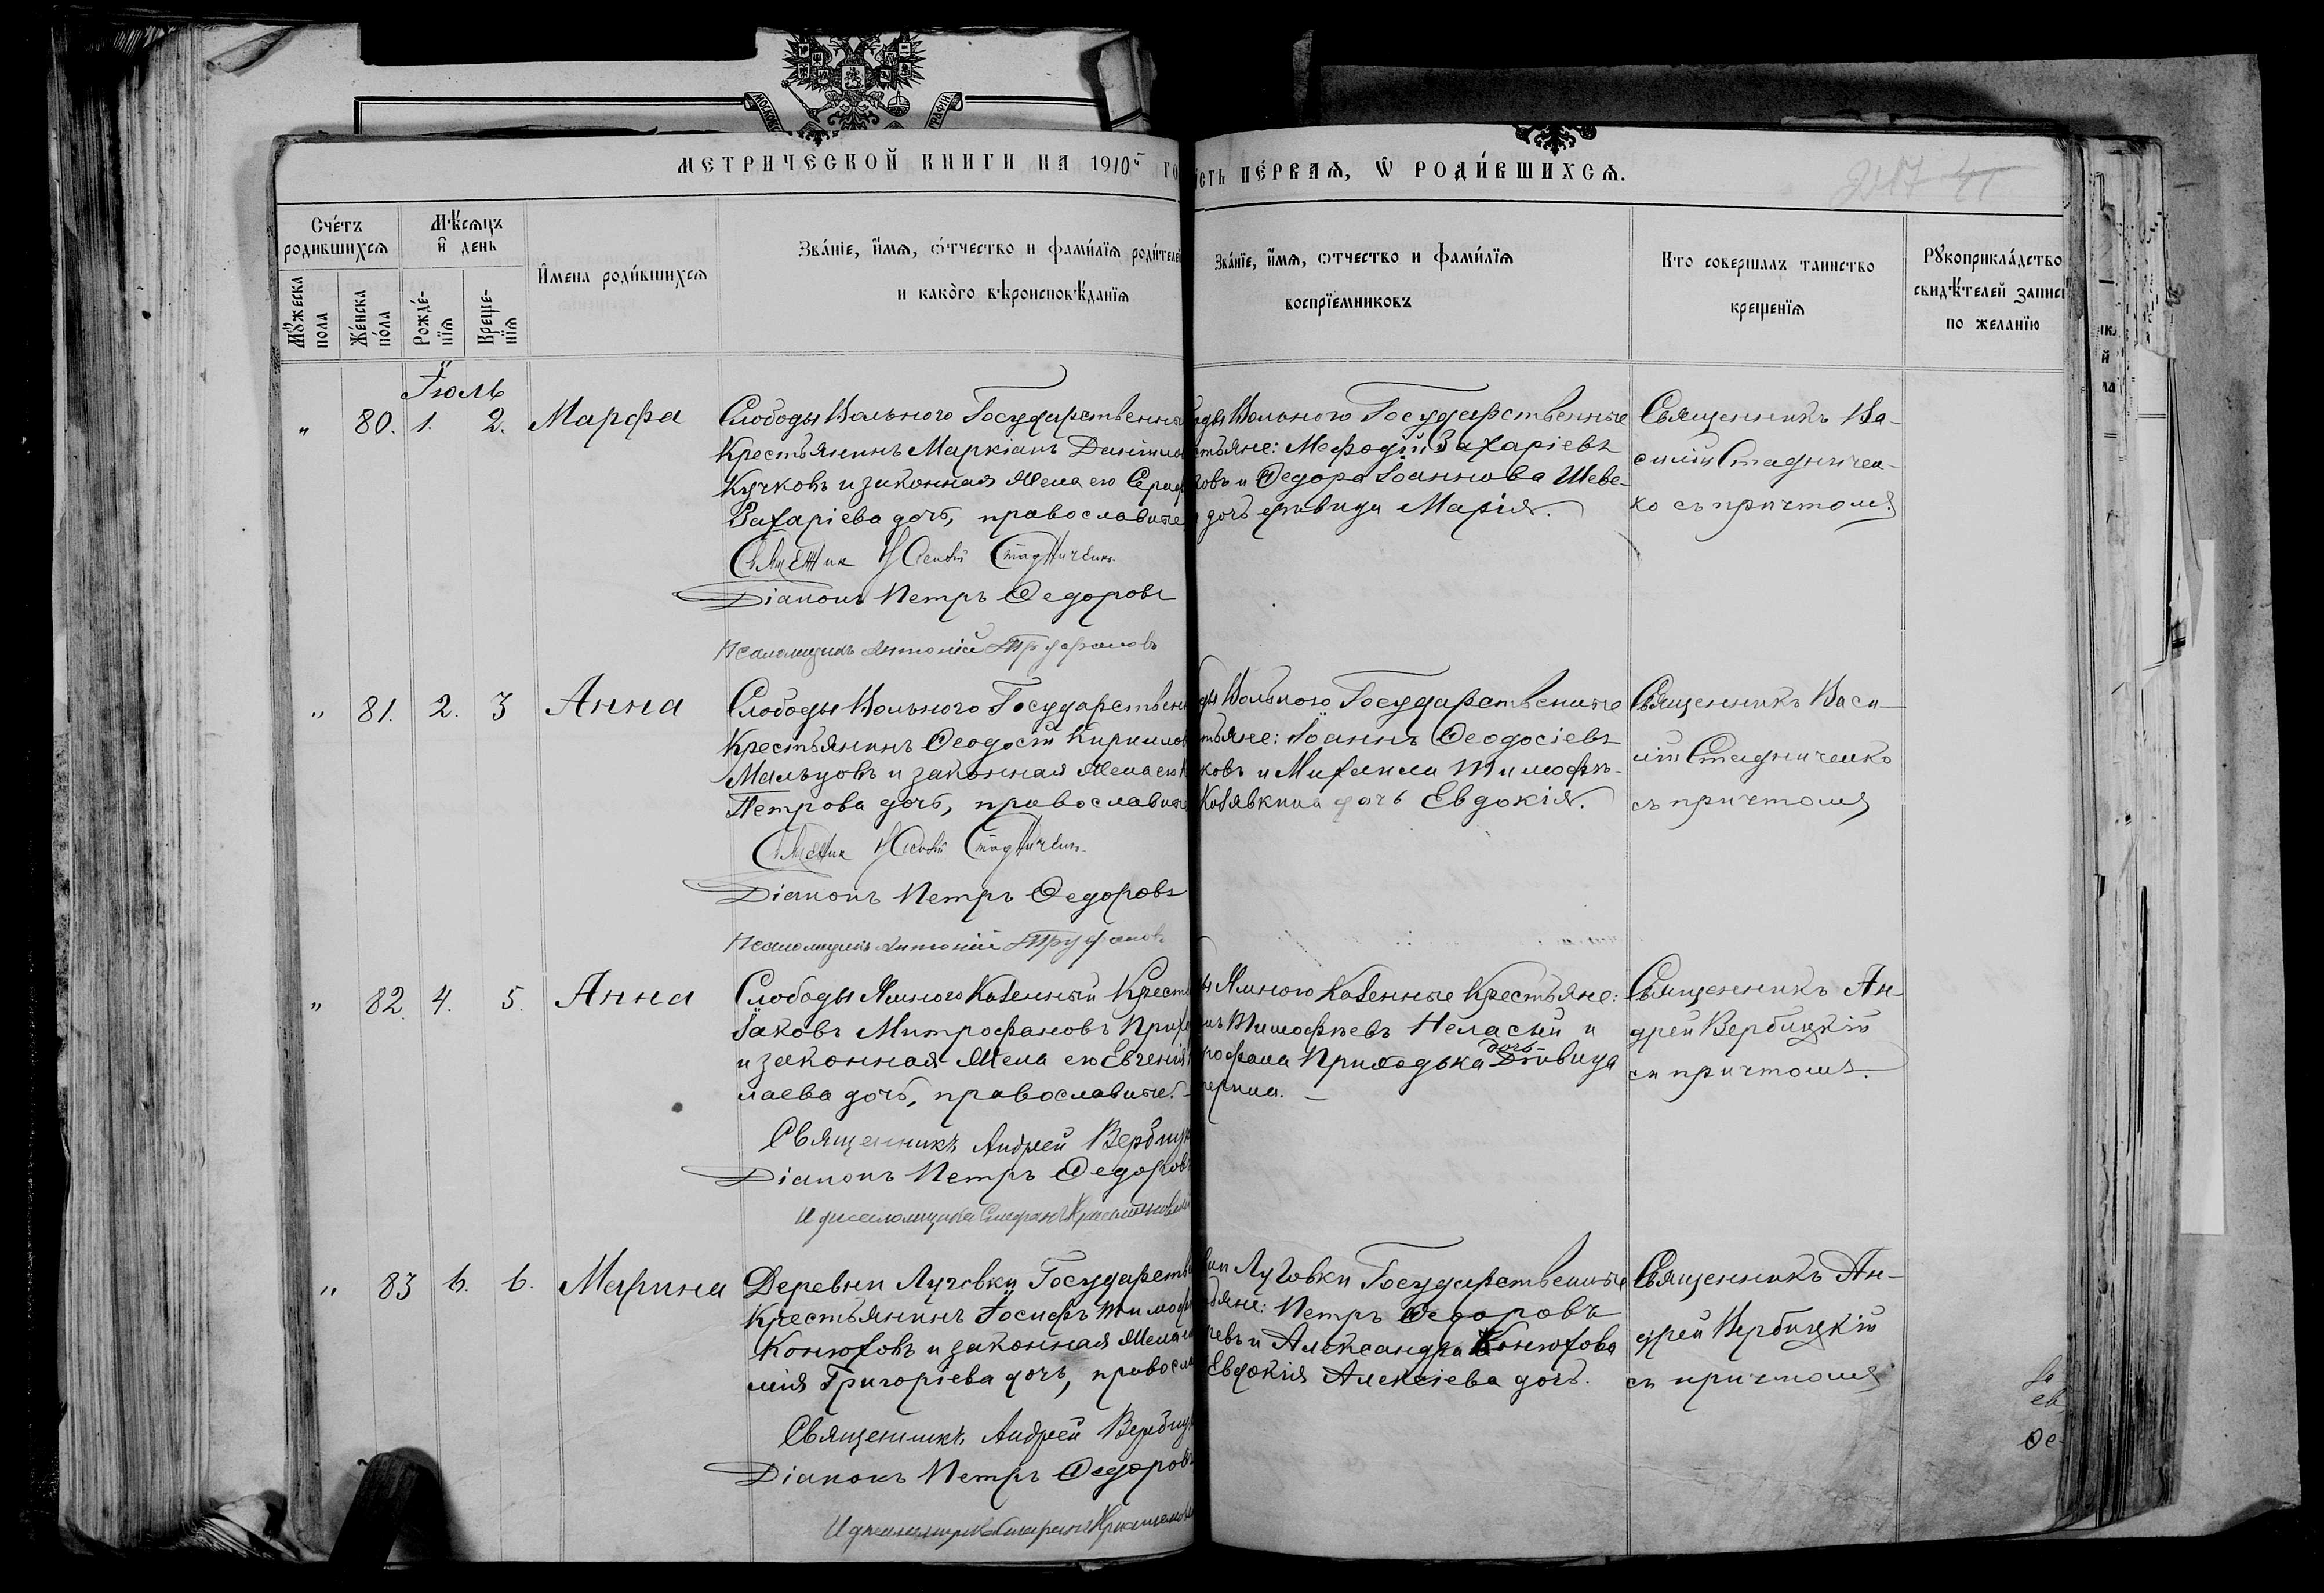 МЕТРИЧЕСКОЙ КНИГИ НА 1910й ГО
СТЬ ПЕ́РВАѦ, Ѿ РОДИ́ВШИХСѦ.
Сче́тъ родившихсѧ
Мѣ́сѧцъ и день
Имена роди́вшихсѧ
Зва́ніе, и́мѧ, о́тчество и фами́лїѧ роди́телей
и како́го вѣроисповѣ́данїѧ
Зва́нїе, и́мѧ, отчество и фами́лїѧ
воспрїемниковъ
Кто совершалъ таинство
крещенїѧ
Рꙋкоприкла́дство
свидѣ́телей записи
по желанїю
Мꙋжеска пола
Же́нска по́ла
Рожде́-нїѧ
Креще-нїѧ
Іюль
" 80. 1. 2. Марфа
Слободы Вольного Государственн
Крестьянинъ Маркіанъ Даніило
Кучковъ и законная жена его Сераф
Захаріева дочь, православные
Священник Василій Стадниченко
Діаконъ Петръ Ѳедоровъ
Псаломщикъ Антоній Труфановъ
ды Вольного Государственные
стьяне: Меѳодій Захаріевъ
ковъ и Ѳедора Іоаннова Шеве-
дочь дѣвица Марія.
Священникъ Ва-
силій Стадничен-
ко съ причтомъ.
" 81. 2. 3 Анна
Слободы Вольного Государствен
Крестьянинъ Ѳеодосій Кирилло
Мальцовъ и законная жена его
Петрова дочь, православные
Священник Василій Стадниченко
Діаконъ Петръ Ѳедоровъ
Псаломщикъ Антоній Труфановъ
ды Вольного Государственные
тьяне: Іоаннъ Ѳеодосіевъ
ковъ и Михаила Тимоѳѣ-
Козявкина дочь Евдокія.
Священникъ Васи-
лій Стадниченко
съ причтомъ
" 82. 4. 5. Анна
Слободы Ямного Казенный Крест
Іаковъ Митрофановъ Прих
и законная жена его Евгенія
лаева дочь, православные.
Священникъ Андрей Вербиц
Діаконъ Петръ Ѳедоров
И д псаломщика Стефанъ
ы Ямного Казенные Крестьяне:
нъ Тимоѳѣевъ Неласый и
рофана Приходька дочь дѣвица
терина.
Священникъ Ан-
дрей Вербицкій
съ причтомъ.
" 83 6. 6. Марина
Деревни Луговки Государств
Крестьянинъ Іосифъ Тимоѳ
Конюховъ и законная жена е
мія Григоріева дочь, правосла
Священникъ Андрей Вербиц
Діаконъ Петръ Ѳедоров
И д псаломщика Стефанъ
вни Луговки Государственные
тьяне: Петръ Ѳедоровъ
ревъ и Александра Конюхова
Евдокія Алексіева дочь.
Священникъ Ан-
дрей Вербицкій
съ причтомъ